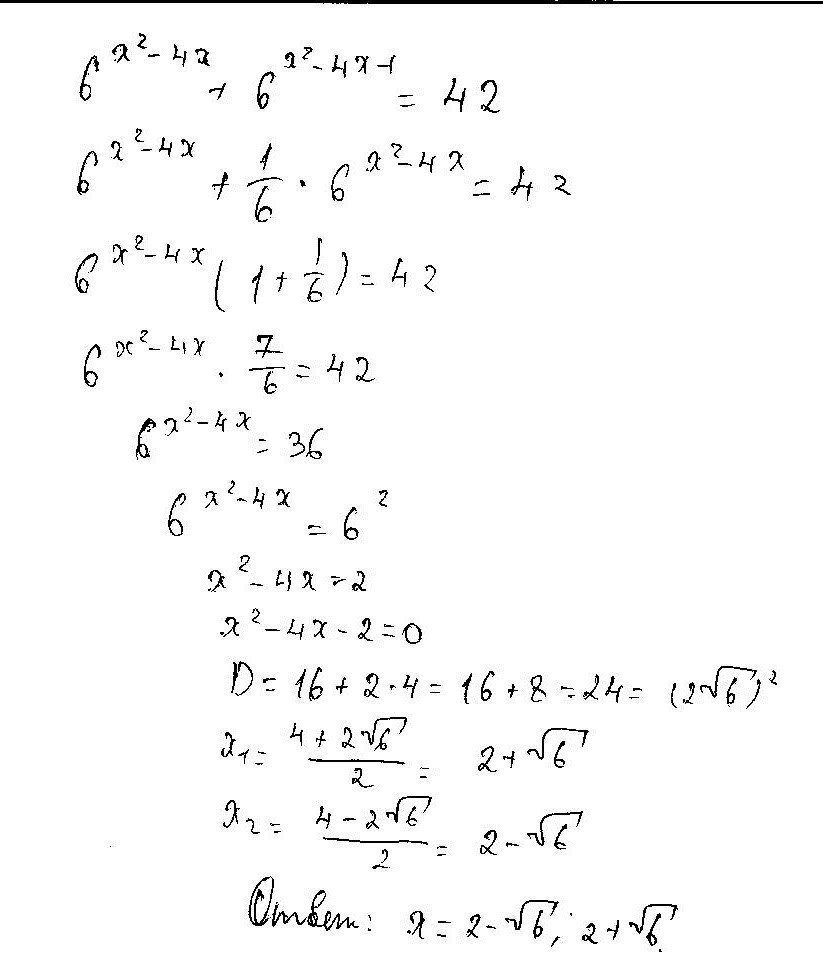 6^(x²-4x) + 6^(x²-4x-1) = 42
6^(x²-4x) + 1/6 · 6^(x²-4x) = 42
6^(x²-4x) (1 + 1/6) = 42
6^(x²-4x) · 7/6 = 42
6^(x²-4x) = 36
6^(x²-4x) = 6²
x² - 4x = 2
x² - 4x - 2 = 0
D = 16 + 2·4 = 16 + 8 = 24 = (2√6)²
x₁ = (4 + 2√6)/2 = 2 + √6
x₂ = (4 - 2√6)/2 = 2 - √6
Ответ: x = 2 - √6; 2 + √6.